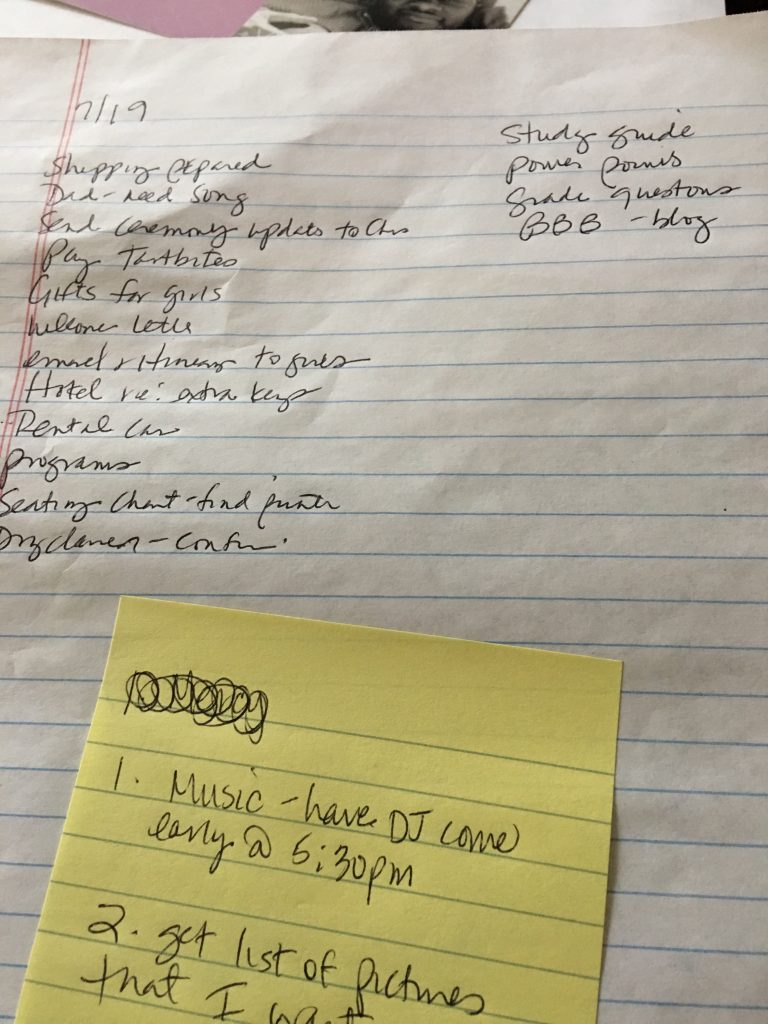 7/19
Shopping prepared
Dad - need song
Send ceremony update to Chris
Pay Tastbites
Gifts for girls
Welcome letter
email itinerary to guests
Hotel re: extra keys
Rental Car
programs
Seating Chart - find printer
Drycleaners - confirm
Study guide
Power points
Grade questions
BBB - blog
1. Music - have DJ come
early @ 5:30pm
2. get list of pictures
that I want